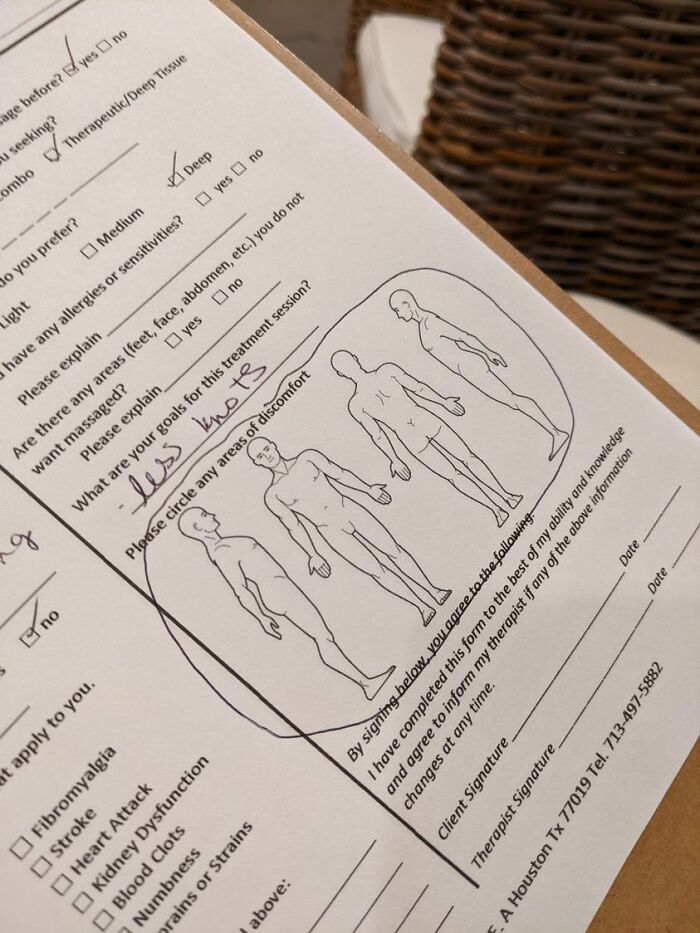 age before? yes no
u seeking?
ombo Therapeutic/Deep Tissue
do you prefer?
Light Medium Deep
have any allergies or sensitivities? yes no
Please explain
Are there any areas (feet, face, abdomen, etc.) you do not
want massaged? yes no
Please explain
What are your goals for this treatment session?
less knots
Please circle any areas of discomfort
By signing below, you agree to the following.
I have completed this form to the best of my ability and knowledge
and agree to inform my therapist if any of the above information
changes at any time.
Client Signature Date
Therapist Signature Date
ng
no
at apply to you.
Fibromyalgia
Stroke
Heart Attack
Kidney Dysfunction
Blood Clots
Numbness
prains or Strains
above:
E. A Houston Tx 77019 Tel. 713-497-5882